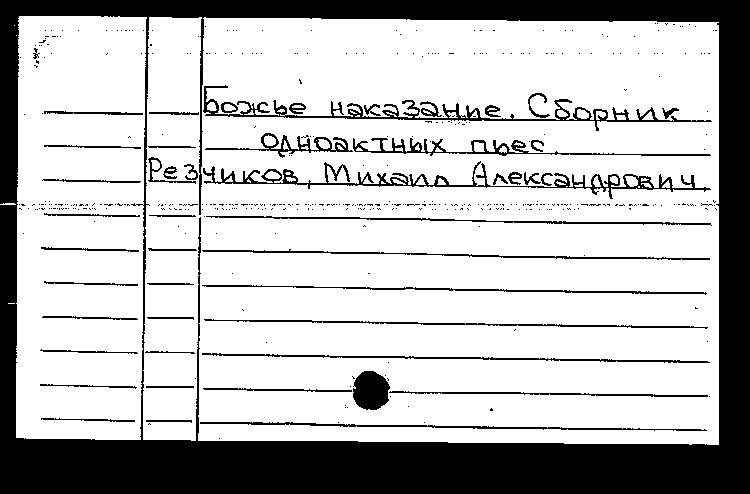 Божье наказание. Сборник
одноактных пьес.
Резчиков, Михаил Александрович.